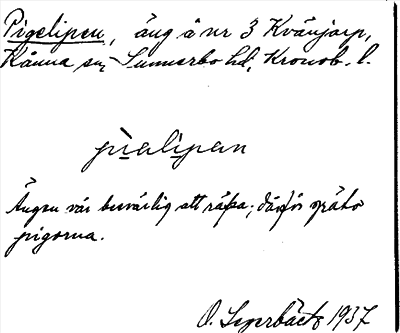 Pigelipen, äng å nr 3 Kvänjarp,
Kånna sn, Sunnerbo hd, Kronob. l.
pi̱ali̱pan
Ängen var besvärlig att räfsa; därför gräto
pigorna.
O. 1937